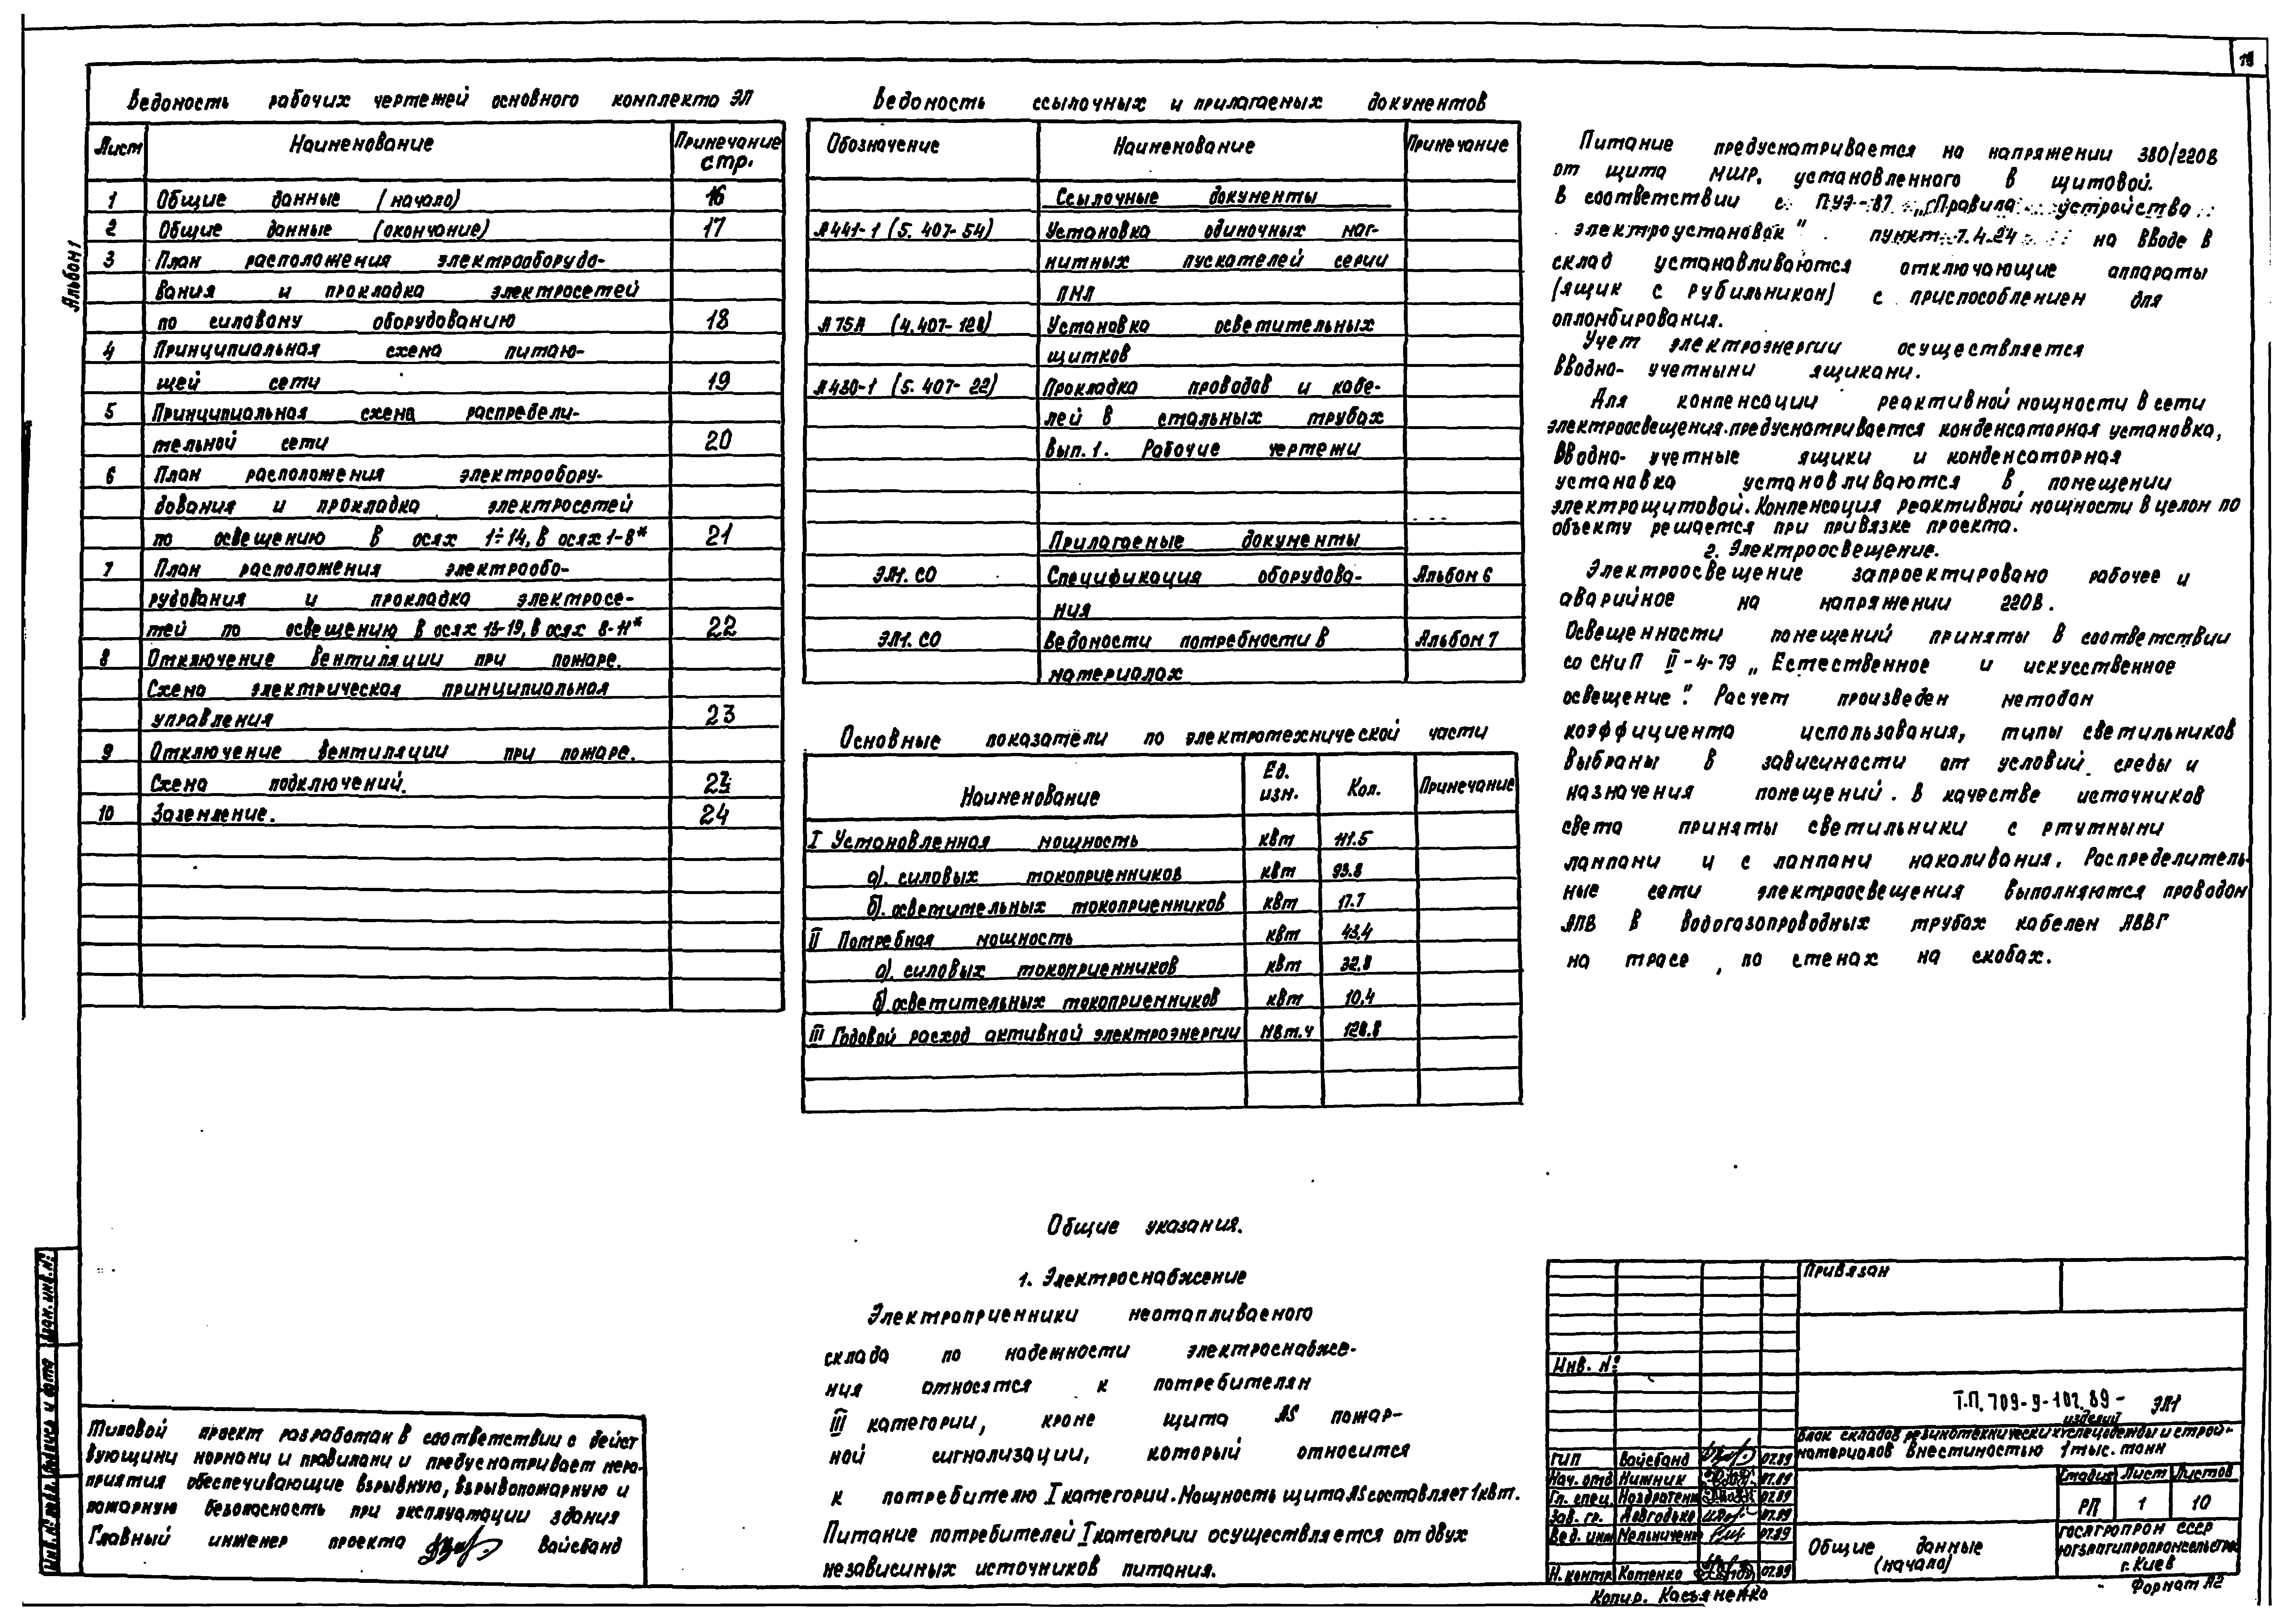 Альбом 1
Ведомость рабочих чертежей основного комплекта ЭЛ
Лист Наименование Примечание стр.
1 Общие данные (начало) 16
2 Общие данные (окончание) 17
3 План расположения электрооборудо-
вания и прокладка электросетей
по силовому оборудованию 18
4 Принципиальная схема питаю-
щей сети 19
5 Принципиальная схема распредели-
тельной сети 20
6 План расположения электрообору-
дования и прокладка электросетей
по освещению в осях 1÷14, в осях 1-8* 21
7 План расположения электрообо-
рудования и прокладка электросе-
тей по освещению в осях 13-19, в осях 8-11* 22
8 Отключение вентиляции при пожаре.
Схема электрическая принципиальная
управления 23
9 Отключение вентиляции при пожаре.
Схема подключений. 23
10 Заземление. 24
Ведомость ссылочных и прилагаемых документов
Обозначение Наименование Примечание
Ссылочные документы
А441-1 (5.407-54) Установка одиночных маг-
нитных пускателей серии
ПМЛ
А75А (4.407-128) Установка осветительных
щитков
А430-1 (5.407-22) Прокладка проводов и кабе-
лей в стальных трубах
Вып.1. Рабочие чертежи
Прилагаемые документы
ЭЛ1.СО Спецификация оборудова- Альбом 6
ния
ЭЛ1.СО Ведомости потребности в Альбом 7
материалах
Основные показатели по электротехнической части
Наименование Ед. изм. Кол. Примечание
I Установленная мощность квт 111.5
а). силовых токоприемников квт 93.8
б). осветительных токоприемников квт 17.7
II Потребная мощность квт 43.4
а). силовых токоприемников квт 32.8
б). осветительных токоприемников квт 10.4
III Годовой расход активной электроэнергии Мвт.ч 128.8
Общие указания.
1. Электроснабжение
Электроприемники неотапливаемого
склада по надежности электроснабже-
ния относятся к потребителям
III категории, кроме щита ЯS пожар-
ной сигнализации, который относится
к потребителю I категории. Мощность щита ЯS составляет 1квт.
Питание потребителей I категории осуществляется от двух
независимых источников питания.
Питание предусматривается на напряжении 380/220В
от щита МШР, установленного в щитовой.
В соответствии с ПУЭ-87 „Правила устройства
электроустановок" пункт 7.4.24 на вводе в
склад устанавливаются отключающие аппараты
(ящик с рубильником) с приспособлением для
опломбирования.
Учет электроэнергии осуществляется
вводно-учетными ящиками.
Для компенсации реактивной мощности в сети
электроосвещения предусматривается конденсаторная установка,
Вводно-учетные ящики и конденсаторная
установка устанавливаются в помещении
электрощитовой. Компенсация реактивной мощности в целом по
объекту решается при привязке проекта.
2. Электроосвещение.
Электроосвещение запроектировано рабочее и
аварийное на напряжении 220В.
Освещенности помещений приняты в соответствии
со СНиП II-4-79 „Естественное и искусственное
освещение". Расчет произведен методом
коэффициента использования, типы светильников
выбраны в зависимости от условий среды и
назначения помещений. В качестве источников
света приняты светильники с ртутными
лампами и с лампами накаливания. Распределитель-
ные сети электроосвещения выполняются проводом
АПВ в водогазопроводных трубах кабелем АВВГ
на трасе, по стенах на скобах.
Типовой проект разработан в соответствии с дейст
вующими нормами и правилами и предусматривает меро-
приятия обеспечивающие взрывную, взрывопожарную и
пожарную безопасность при эксплуатации здания
Главный инженер проекта Вайсбанд
Инв. № подл. Подпись и дата Взам. инв. №
Привязан
Инв. №
Т.П. 709-9-102.89- ЭЛ1
Блок складов резинотехнических изделий, спецодежды и строй-
материалов вместимостью 1 тыс. тонн
ГИП Вайсбанд 07.89
Нач. отд Нижник 07.89
Гл. спец. Ноздратенк 07.89
Зав. гр. Довгодько 07.89
Вед. инж Мельниченко 07.89
Н. контр. Котенко 07.89
Стадия Лист Листов
РП 1 10
Общие данные
(начало)
Госагропром СССР
г. Киев
Копир. Касьяненко
Формат А2